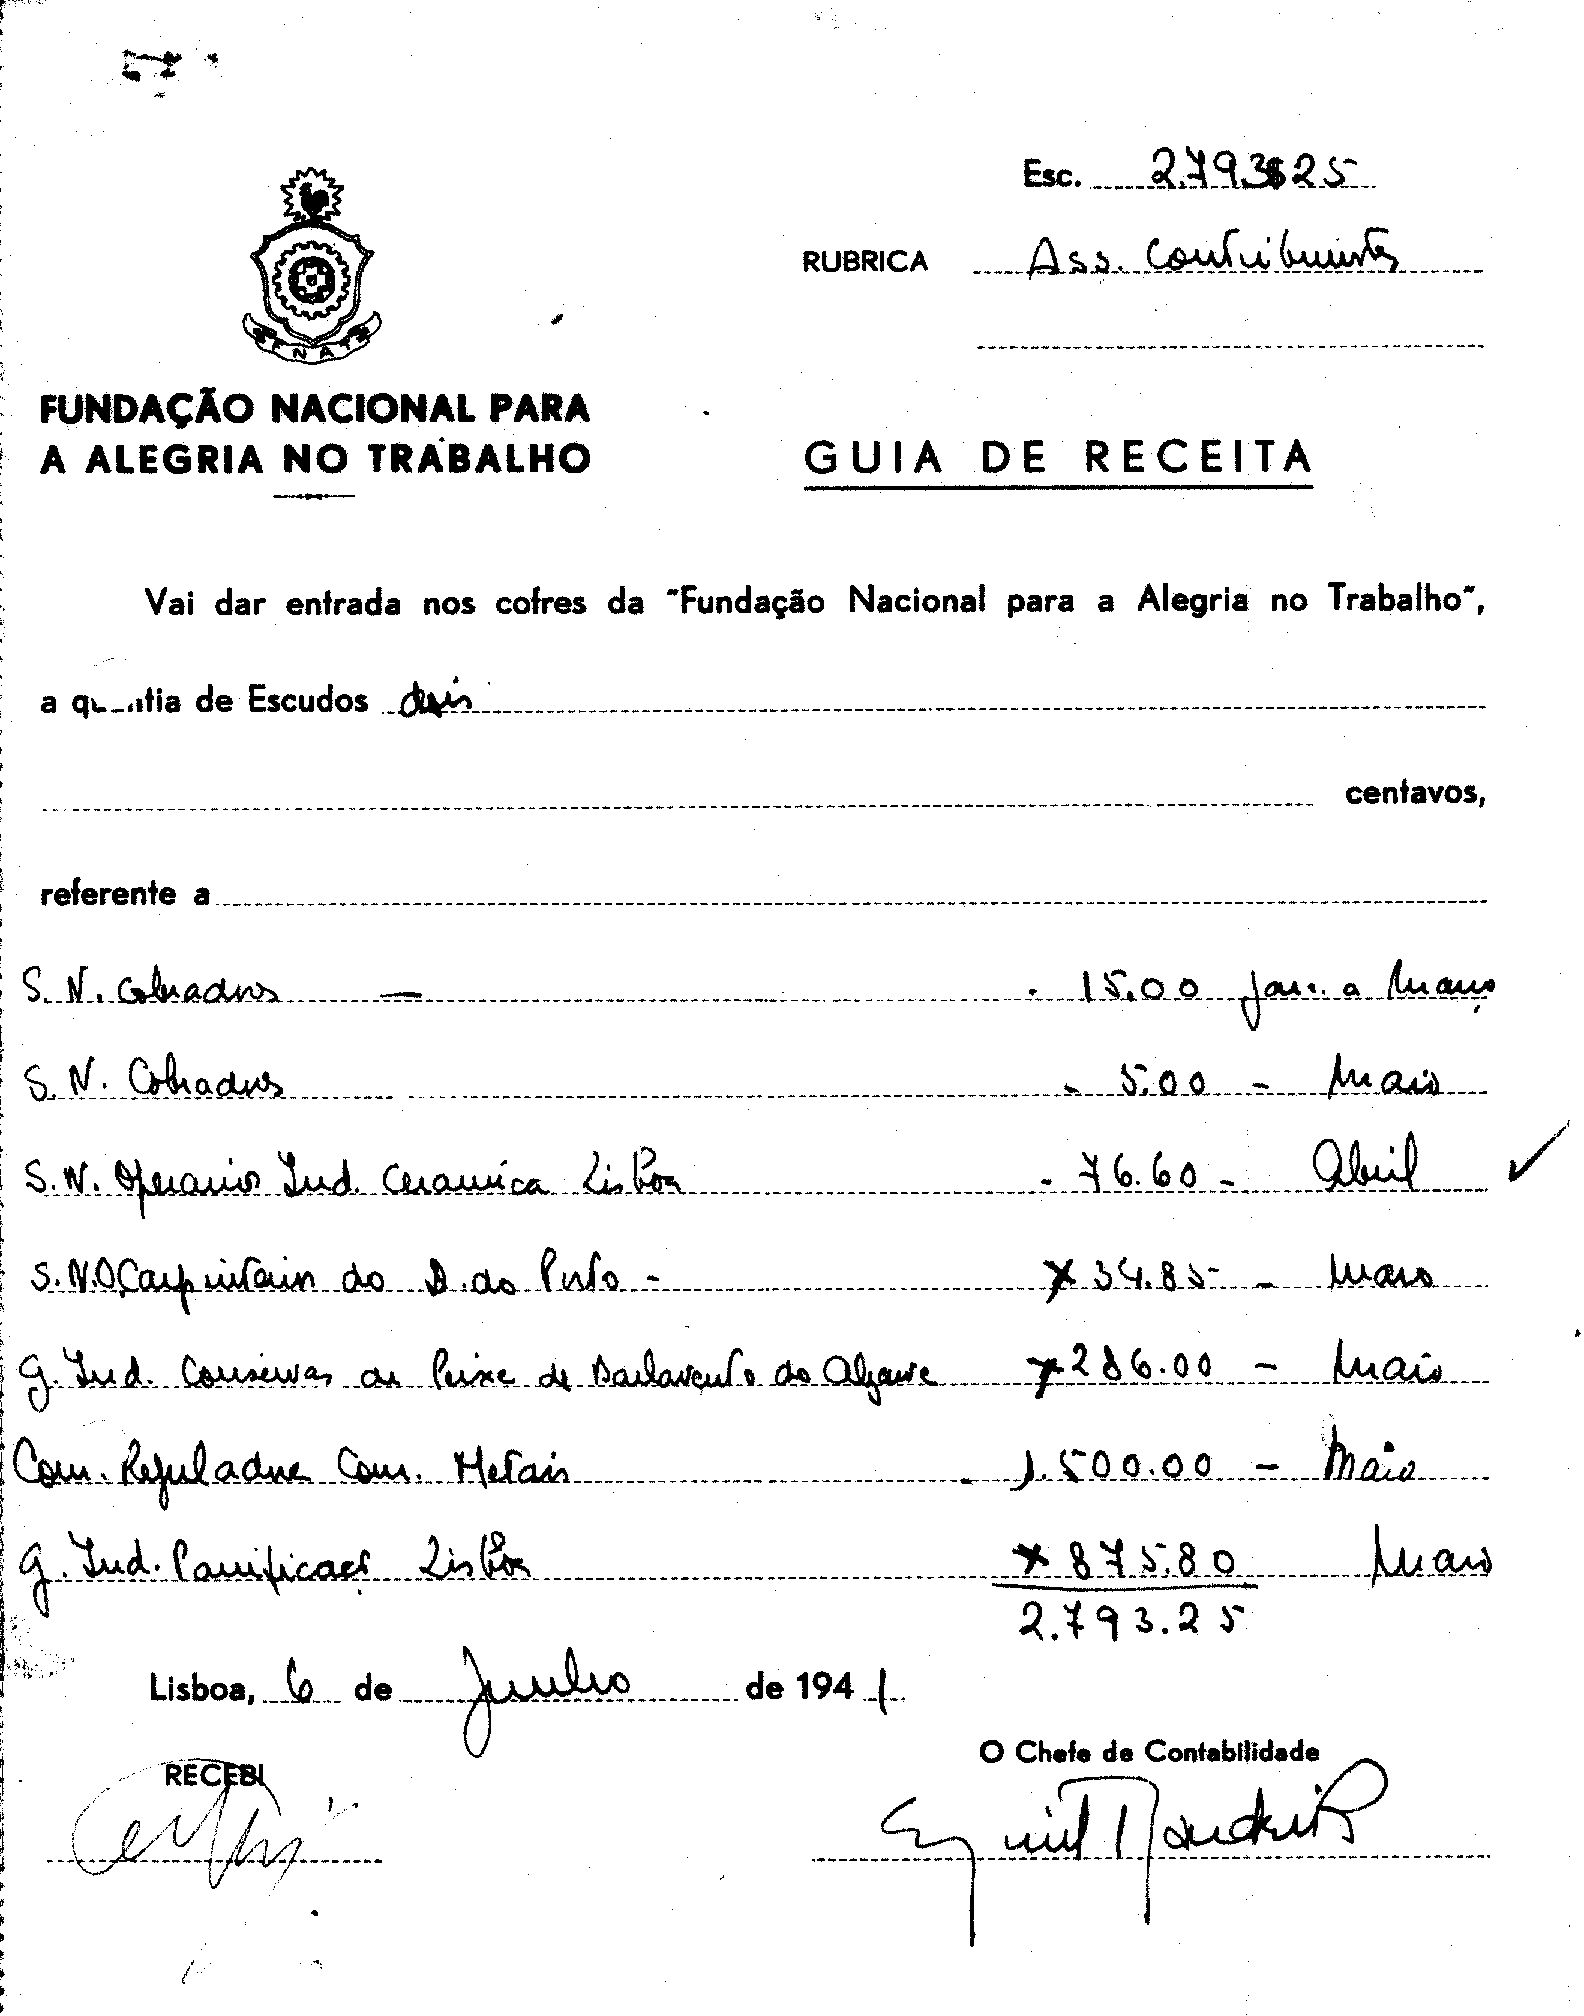 Esc. 2.793$25
RUBRICA Ass. Contribuintes
FENAT
FUNDAÇÃO NACIONAL PARA
A ALEGRIA NO TRABALHO
GUIA DE RECEITA
Vai dar entrada nos cofres da "Fundação Nacional para a Alegria no Trabalho",
a quantia de Escudos dois
centavos,
referente a
S. N. Cobradores — - 15.00 Jan. a Março
S. N. Cobradores - 5.00 - Maio
S. N. Operarios Ind. Ceramica Lisboa - 76.60 - Abril
S. N. O Carpinteiros do D. do Porto - x 34.85 - Maio
G. Ind. Conservas de Peixe de Barlavento do Algarve x 286.00 - Maio
Com. Reguladora Com. Metais - 1.500.00 - Maio
G. Ind. Panificação Lisboa x 875.80 Maio
2.793.25
Lisboa, 6 de Junho de 1941
RECEBI
O Chefe de Contabilidade